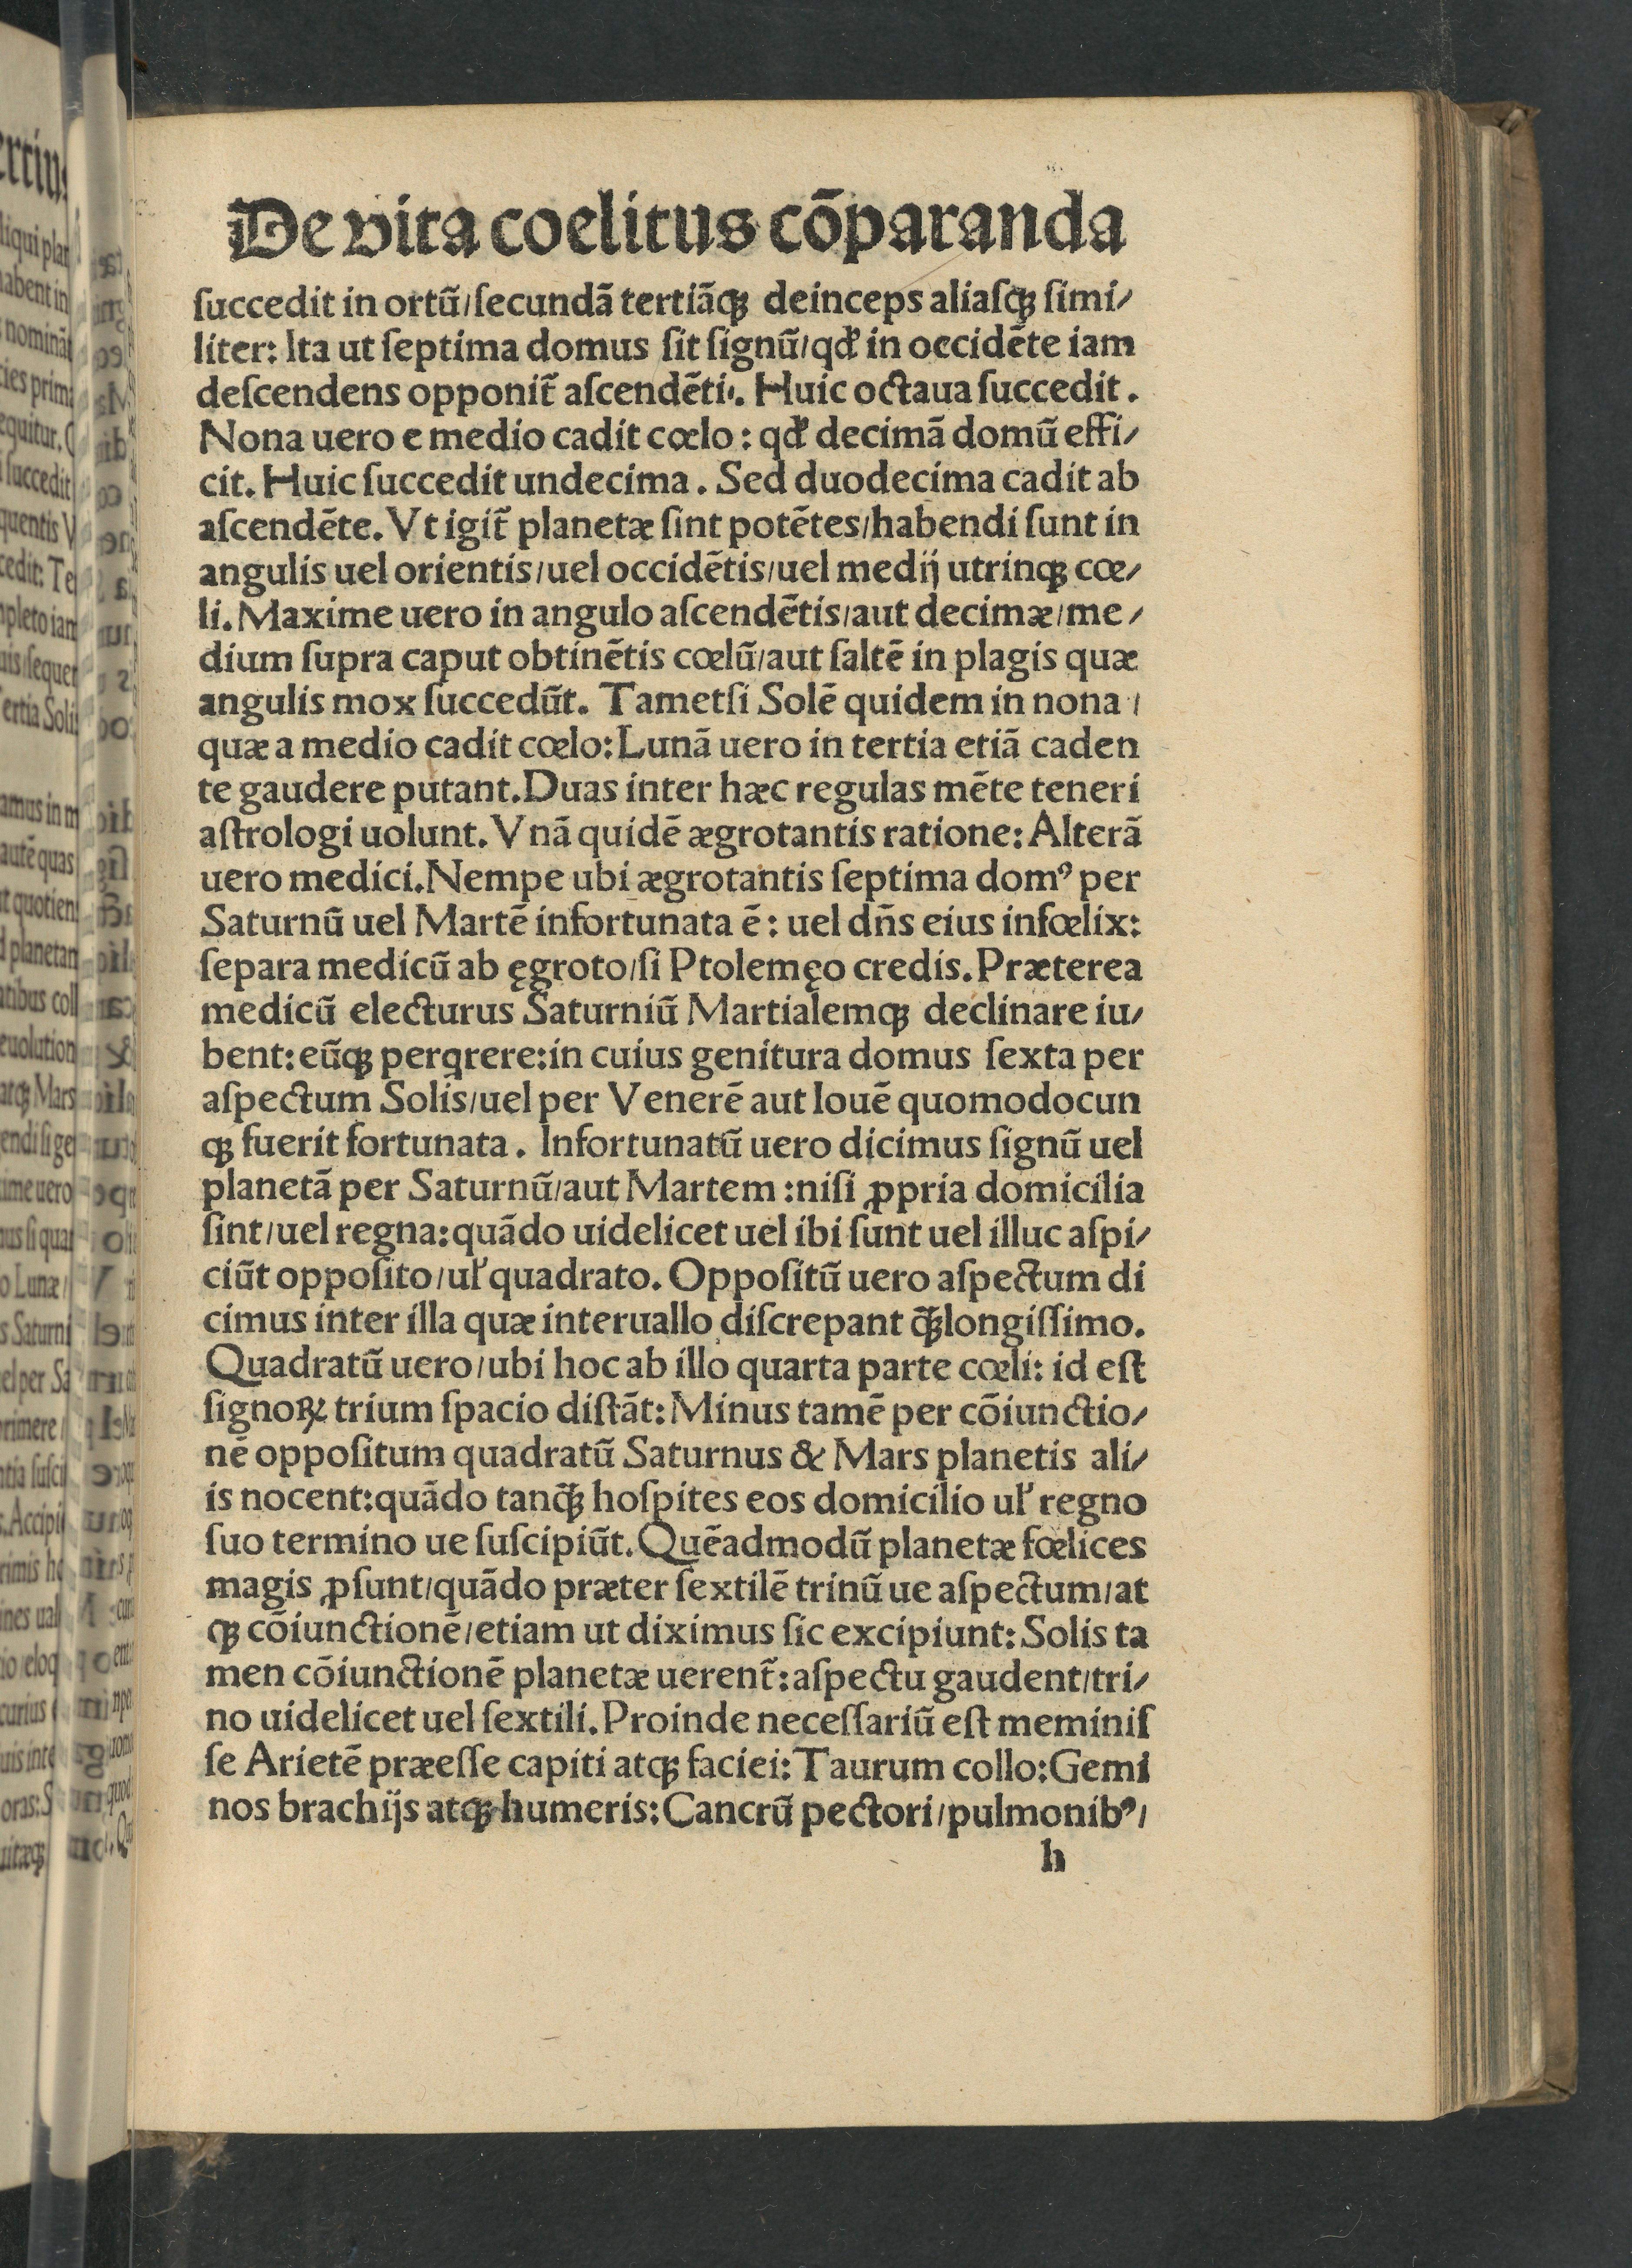 De vita coelitus cōparanda
ſuccedit in ortū/ſecundā tertiāqꝫ deinceps aliaſqꝫ ſimi/
liter: Ita ut ſeptima domus ſit ſignū/qđ in occidēte iam
deſcendens opponit̄ aſcendēti/. Huic octaua ſuccedit.
Nona uero e medio cadit cœlo: qđ decimā domū effi/
cit. Huic ſuccedit undecima. Sed duodecima cadit ab
aſcendēte. Vt igit̄ planetæ ſint potētes/habendi ſunt in
angulis uel orientis/uel occidētis/uel medij utrinqꝫ cœ/
li. Maxime uero in angulo aſcendētis/aut decimæ/me/
dium ſupra caput obtinētis cœlū/aut ſaltē in plagis quæ
angulis mox ſuccedūt. Tametſi Solē quidem in nona/
quæ a medio cadit cœlo: Lunā uero in tertia etiā caden
te gaudere putant. Duas inter hæc regulas mēte teneri
aſtrologi uolunt. Vnā quidē ægrotantis ratione: Alterā
uero medici. Nempe ubi ægrotantis ſeptima domꝰ per
Saturnū uel Martē infortunata ē: uel dn̄s eius infœlix:
ſepara medicū ab ęgroto/ſi Ptolemęo credis. Præterea
medicū electurus Saturniū Martialemqꝫ declinare iu/
bent: eūqꝫ perqͥrere: in cuius genitura domus ſexta per
aſpectum Solis/uel per Venerē aut Iouē quomodocun
qꝫ fuerit fortunata. Infortunatū uero dicimus ſignū uel
planetā per Saturnū/aut Martem: niſi ꝓpria domicilia
ſint/uel regna: quādo uidelicet uel ibi ſunt uel illuc aſpi/
ciūt oppoſito/ul̛ quadrato. Oppoſitū uero aſpectum di
cimus inter illa quæ interuallo diſcrepant qꝫ̄ longiſſimo.
Quadratū uero/ubi hoc ab illo quarta parte cœli: id eſt
ſignoꝝ trium ſpacio diſtāt: Minus tamē per cōiunctio/
nē oppoſitum quadratū Saturnus & Mars planetis ali/
is nocent: quādo tanqꝫ̄ hoſpites eos domicilio ul̛ regno
ſuo termino ue ſuſcipiūt. Quēadmodū planetæ fœlices
magis ꝓſunt/quādo præter ſextilē trinū ue aſpectum/at
qꝫ cōiunctionē/etiam ut diximus ſic excipiunt: Solis ta
men cōiunctionē planetæ uerent̄: aſpectu gaudent/tri/
no uidelicet uel ſextili. Proinde neceſſariū eſt meminiſ
ſe Arietē præeſſe capiti atqꝫ faciei: Taurum collo: Gemi
nos brachijs atqꝫ humeris: Cancrū pectori/pulmonibꝰ/
h